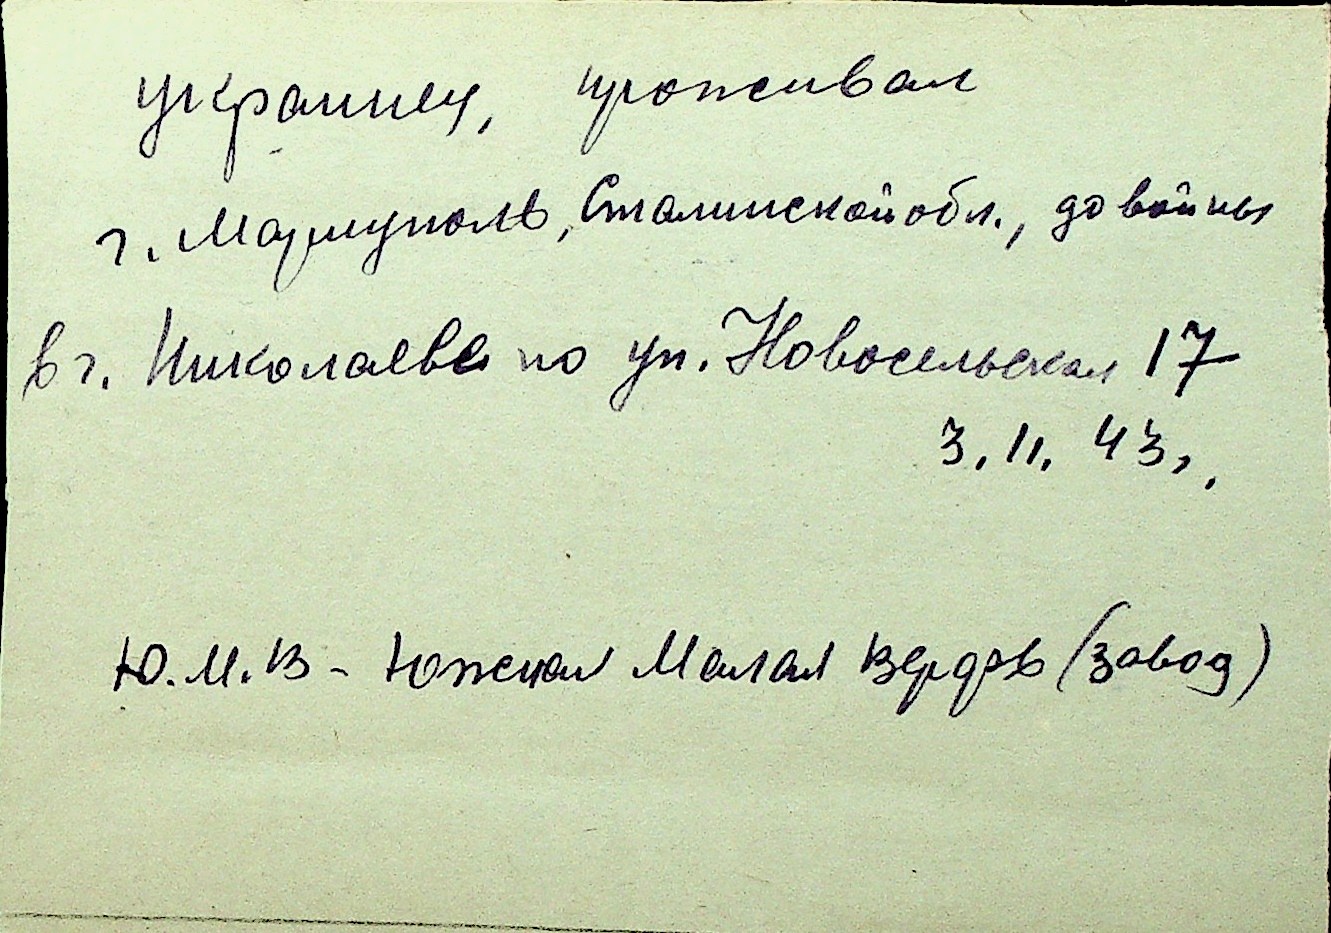 украинец, проживал
г. Мариуполь, Сталинской обл., до войны
в г. Николаеве по ул. Новосельская 17
3.11.43г.
Ю.М.В - Южная Малая Верфь (завод)